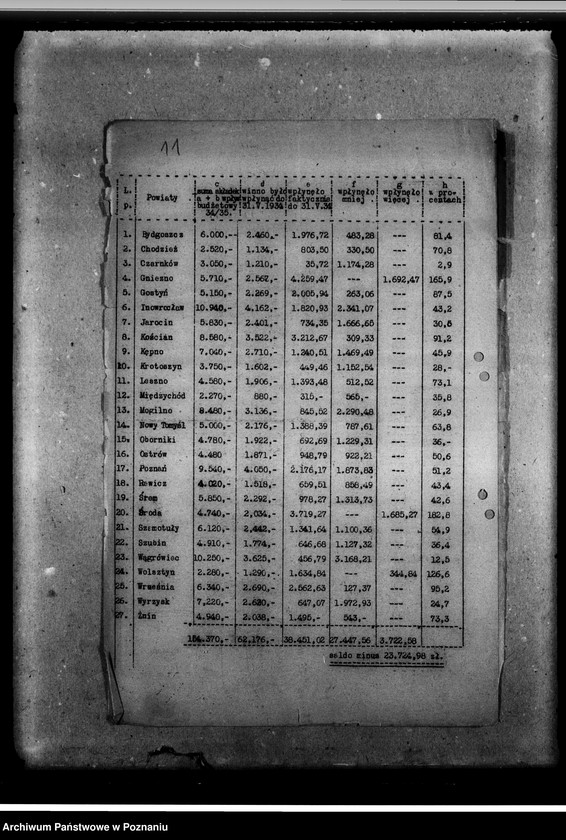 11
L. p. Powiaty c suma składek a + b wpływ budżetowy 34/35. d winno było wpłynąć do 31.V.1934 e wpłynęło faktycznie do 31.V.34 f wpłynęło mniej . g wpłynęło więcej . h w pro- centach
1. Bydgoszcz 6.000,-- 2.460,- 1.976,72 483,28 --- 81,4
2. Chodzież 2.520,- 1.134,- 803,50 330,50 --- 70,8
3. Czarnków 3.050,- 1.210,- 35,72 1.174,28 --- 2,9
4. Gniezno 5.710,- 2.567,- 4.259,47 --- 1.692,47 165,9
5. Gostyń 5.150,- 2.269,- 2.005,94 263,06 --- 87,5
6. Inowrocław 10.940,- 4.162,- 1.820,93 2.341,07 --- 43,2
7. Jarocin 5.830,- 2.401,- 734,35 1.666,65 --- 30,5
8. Kościan 8.580,- 3.522,- 3.212,67 309,33 --- 91,2
9. Kępno 7.040,- 2.710,- 1.240,51 1.469,49 --- 45,9
10. Krotoszyn 3.750,- 1.602,- 449,46 1.152,54 --- 28,-
11. Leszno 4.580,- 1.906,- 1.393,48 512,52 --- 73,1
12. Międzychód 2.270,- 880,- 315,- 565,- --- 35,8
13. Mogilno 8.480,- 3.136,- 845,52 2.290,48 --- 26,9
14. Nowy Tomyśl 5.000,- 2.176,- 1.388,39 787,61 --- 63,8
15. Oborniki 4.780,- 1.922,- 692,69 1.229,31 --- 36,-
16. Ostrów 4.480 1.871,- 948,79 922,21 --- 50,6
17. Poznań 9.540,- 4.050,- 2.176,17 1.873,83 --- 51,2
18. Rawicz 4.020,- 1.518,- 659,51 858,49 --- 43,4
19. Śrem 5.850,- 2.292,- 978,27 1.313,73 --- 42,6
20. Środa 4.740,- 2.034,- 3.719,27 --- 1.685,27 182,8
21. Szamotuły 6.120,- 2.442,- 1.341,64 1.100,36 --- 54,9
22. Szubin 4.910,- 1.774,- 646,68 1.127,32 --- 36,4
23. Wągrówiec 10.250,- 3.625,- 456,79 3.168,21 --- 12,5
24. Wolsztyn 2.280,- 1.290,- 1.634,84 --- 344,84 126,6
25. Września 6.340,- 2.690,- 2.562,63 127,37 --- 95,2
26. Wyrzysk 7,220,- 2.620,- 647,07 1.972,93 --- 24,7
27. Żnin 4.940,- 2.038,- 1.495,- 543,- --- 73,3
154.370,- 62.176,- 38.451,02 27.447,56 3.722,58
saldo minus 23.724,98 zł.
Archiwum Państwowe w Poznaniu